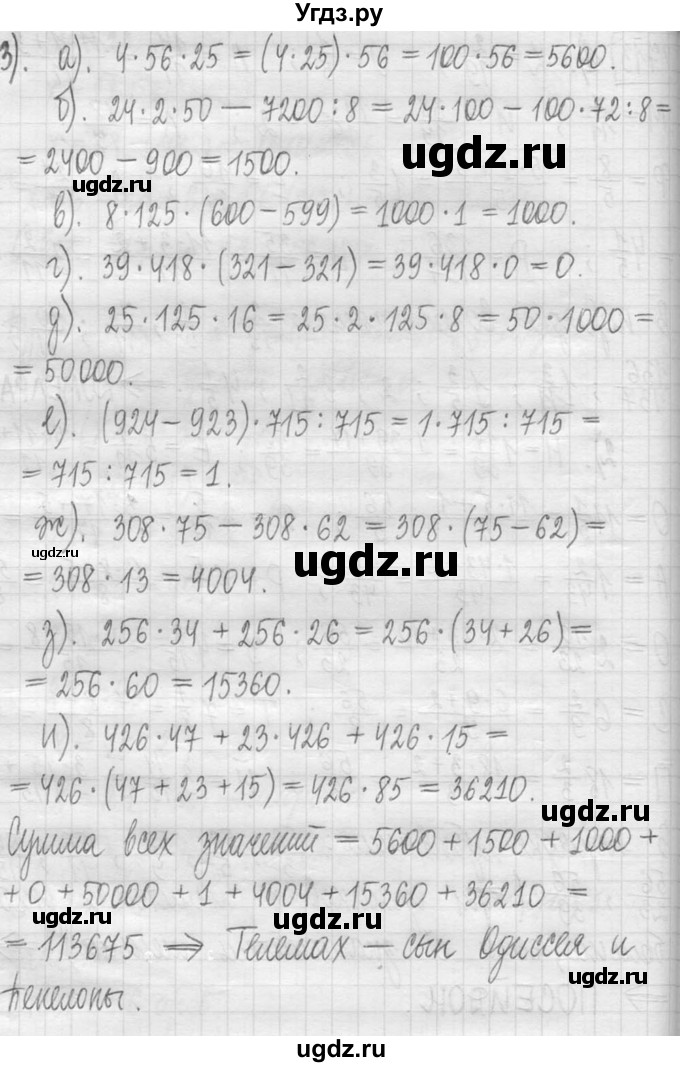 Угдз.ру
3). а). 4·56·25 = (4·25)·56 = 100·56 = 5600.
б). 24·2·50 — 7200:8 = 24·100 — 100·72:8 =
= 2400 — 900 = 1500.
ugdz.ru
ugdz.ru
в). 8·125·(600 — 599) = 1000·1 = 1000.
г). 39·418·(321 — 321) = 39·418·0 = 0.
ugdz.ru
д). 25·125·16 = 25·2·125·8 = 50·1000 =
ugdz.ru
= 50000.
ugdz.ru
е). (924 — 923)·715:715 = 1·715:715 =
= 715:715 = 1.
ж). 308·75 — 308·62 = 308·(75 — 62) =
ugdz.ru
ugdz.ru
= 308·13 = 4004.
з). 256·34 + 256·26 = 256·(34 + 26) =
= 256·60 = 15360.
ugdz.ru
и). 426·47 + 23·426 + 426·15 =
= 426·(47 + 23 + 15) = 426·85 = 36210.
ugdz.ru
Сумма всех значений = 5600 + 1500 + 1000 +
+ 0 + 50000 + 1 + 4004 + 15360 + 36210 =
ugdz.ru
ugdz.ru
= 113675 ⇒ Телемах — сын Одиссея и
ugdz.ru
Пенелопы.
ugdz.ru